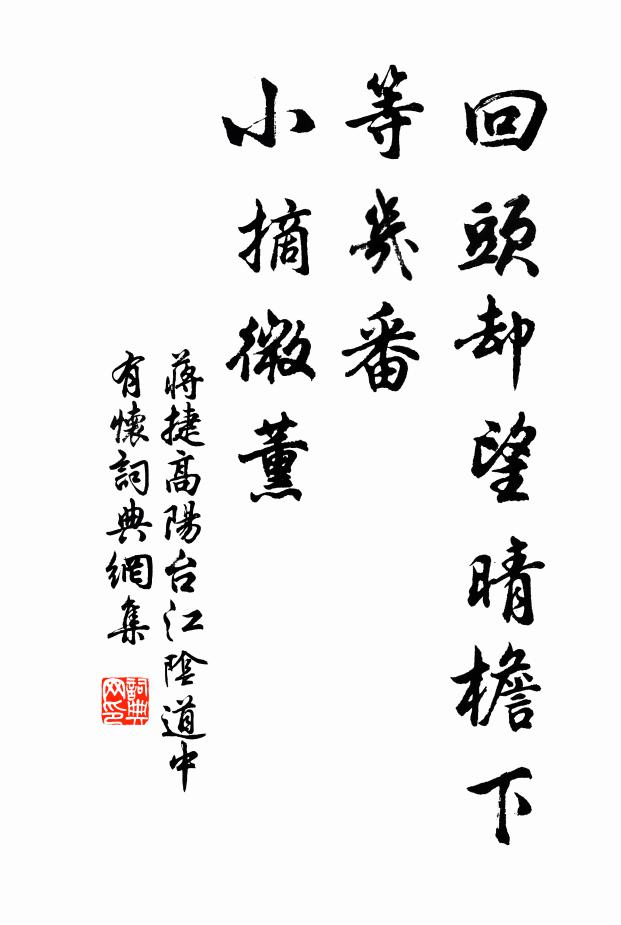 回頭却望晴檐下
等幾番
小摘微薰
蔣捷高陽台江陰道中
有懷詞典網集
詞典网印